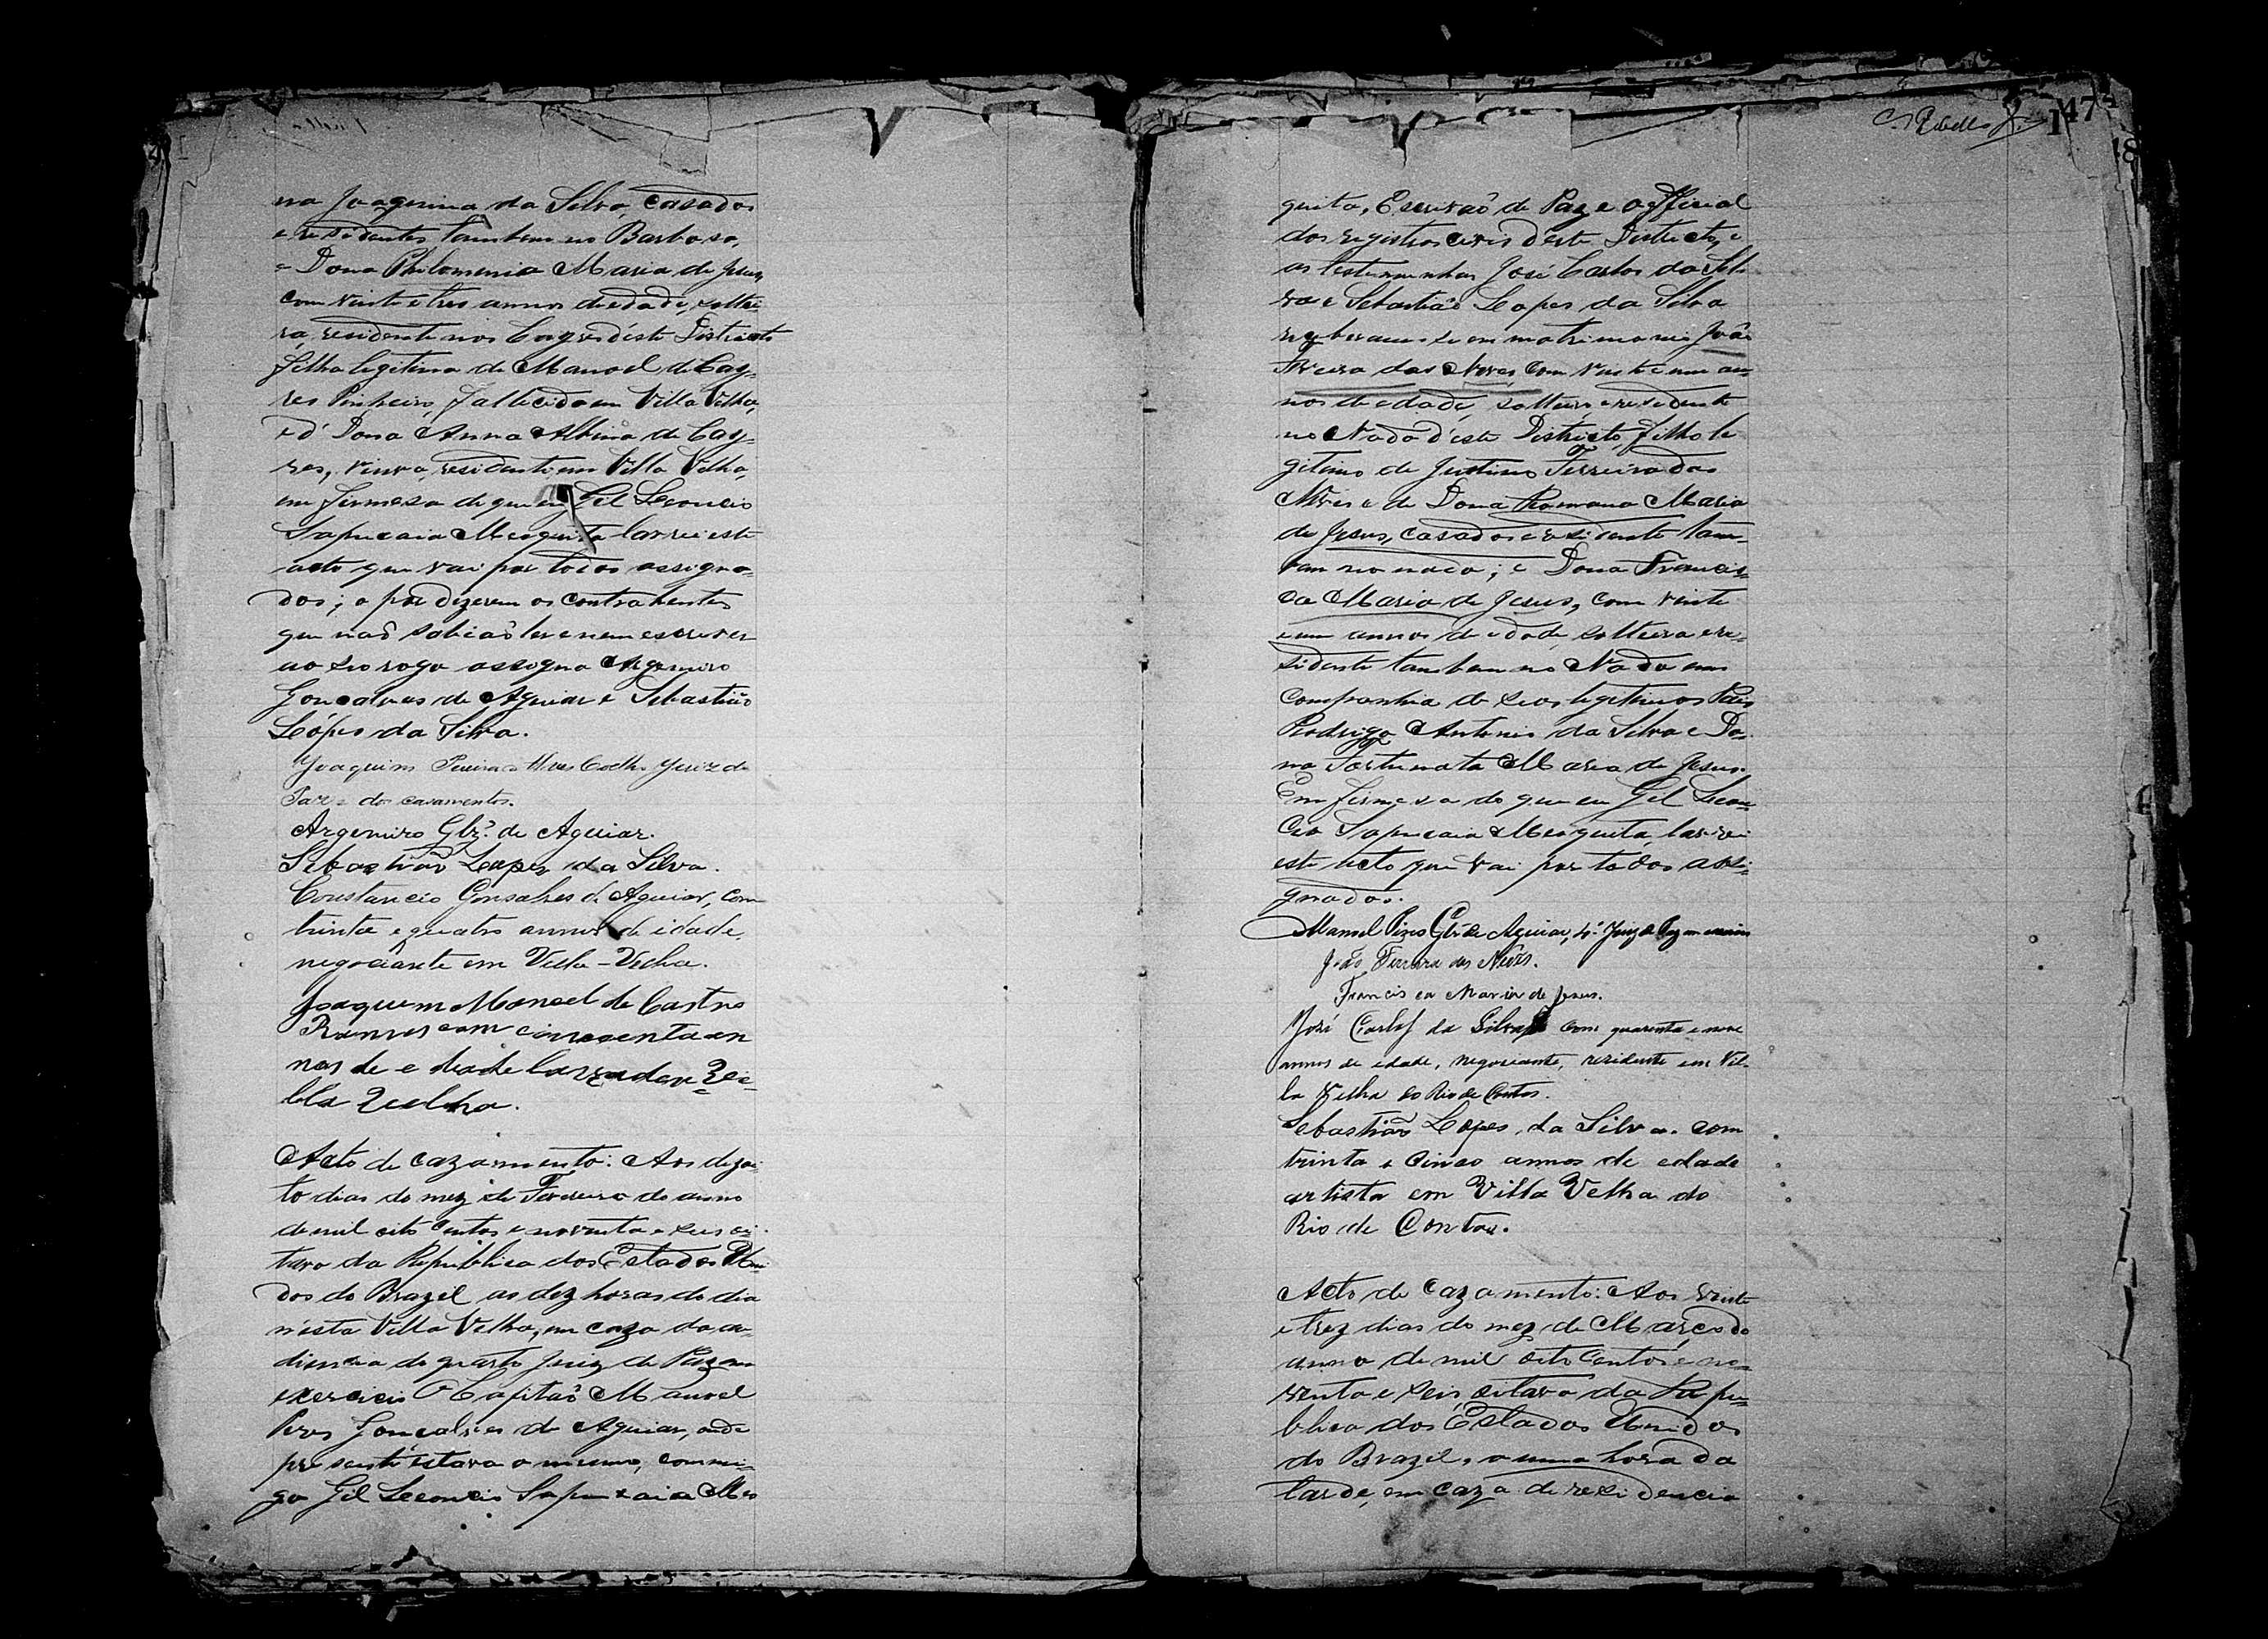 na Joaquina da Silva, casados
e residentes tambem no Barboso,
e Dona Philomenia Maria de Jesus,
com vinte e tres annos de edade, soltei-
ra, residente nos Cayres d'este Districto
filha legitima de Manoel de Cay-
res Pinheiro, fallecido em Villa Velha,
e d' Dona Anna Albina de Cay-
res, viuva, residente em Villa Velha,
em firmesa do que eu Gil Leoncio
Sapucaia Mesquita lavrei este
acto que vai por todos assigna-
dos; e por dizerem os contrahentes
que naõ sabiaõ ler e nem escrever
ao seo rogo assigna Argemiro
Goncalves de Aguiar e Sebastiaõ
Lópes da Silva.
Joaquim Pereira Coelho Juiz de
Paz e dos casamentos.
Argemiro Glz.º de Aguiar.
Sebastiaõ Lopes da Silva.
Constancio Gonsalves de Aguiar, com
trinta e quatro annos de idade,
negociante em Villa-Velha.
Joaquem Manoel de Castro
Ramos com cincoenta an
nos de edade lavrador Vi-
lla Velha.
Acto de cazamento: Aos dezoi-
to dias do mez de Fevereiro do anno
de mil oito centos e noventa e seis oi-
tavo da Republica dos Estados Uni
dos do Brazil as dez horas do dia
n'esta Villa Velha, em caza da au-
diencia do quarto Juiz de Paz em
exercicio O Capitaõ Manoel
Pires Goncalves de Aguiar, onde
presente estava o mesmo, commi-
go Gil Leoncio Sapucaia Mes
C. Rebello J.
147
48
quita, Escrivaõ de Paz e official
dos registros civis d'este Districto, e
as testemunhas José Carlos da Sil
va e Sebastiaõ Lopes da Silva
receberam-se em matrimonio João
Ferreira das Neves, com vinte e um an-
nos de edade, solteiro e residente
no Nado d'este Districto, filho le
gitimo de Justino Ferreira das
Neves e de Dona Romana Maria
de Jesus, casados e residente tam-
bem no nado; e Dona Francis-
ca Maria de Jesus, com vinte
e um annos de edade, solteira e re-
sidente tambem no Nado em
companhia de seos legitimos Pais
Rodrigo Antonio da Silva e Do-
na Fortunata Maria de Jesus.
Em firmesa do que eu Gil Leon-
cio Sapucaia Mesquita, lavrei
este acto que vai por todos assi-
gnados.
Manoel Pires Glz de Aguiar, 4º Juiz de Paz em exercicio
João Ferreira das Neves.
Francisca Maria de Jesus.
José Carlos da Silva com quarenta e nove
annos de edade, negociante, residente em Vil-
la Velha do Rio de Contas.
Sebastiaõ Lopes da Silva. com
trinta e cinco annos de edade
artista em Villa Velha do
Rio de Contas.
Acto de cazamento: Aos vinte
e trez dias do mez de Março do
anno de mil oito centos e no-
venta e seis, oitavo da Repu-
blica dos Estados Unidos
do Brazil, a uma hora da
tarde, em caza de residencia